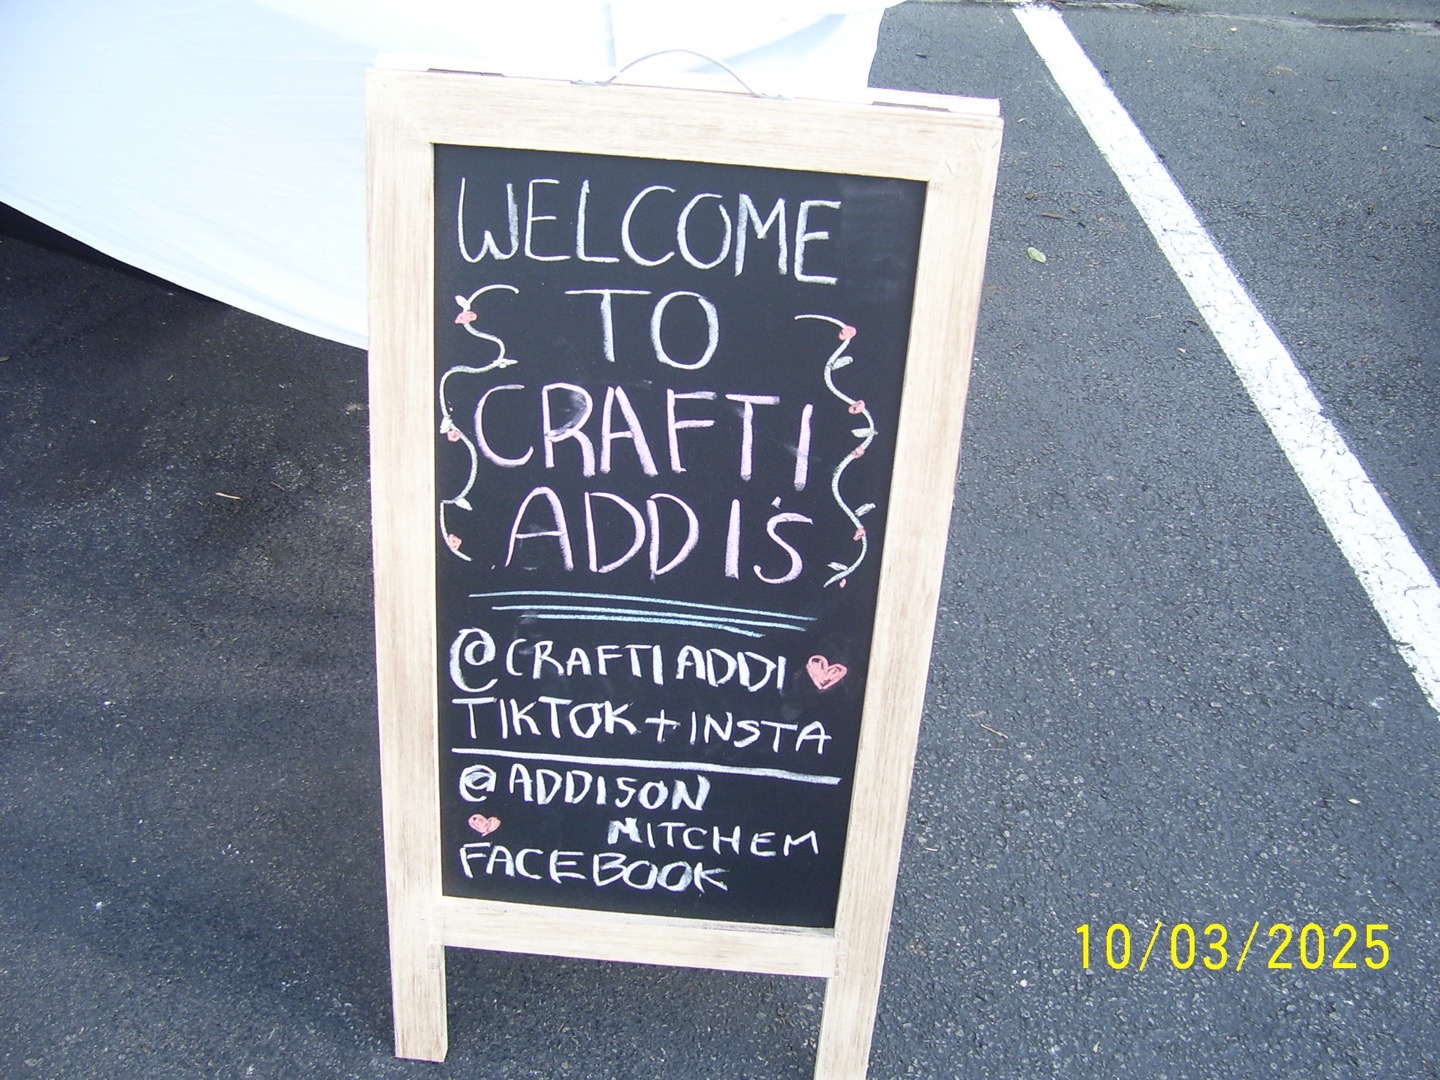 WELCOME
TO
CRAFTI
ADDI'S
@CRAFTIADDI
TIKTOK + INSTA
@ADDISON
MITCHEM
FACEBOOK
10/03/2025